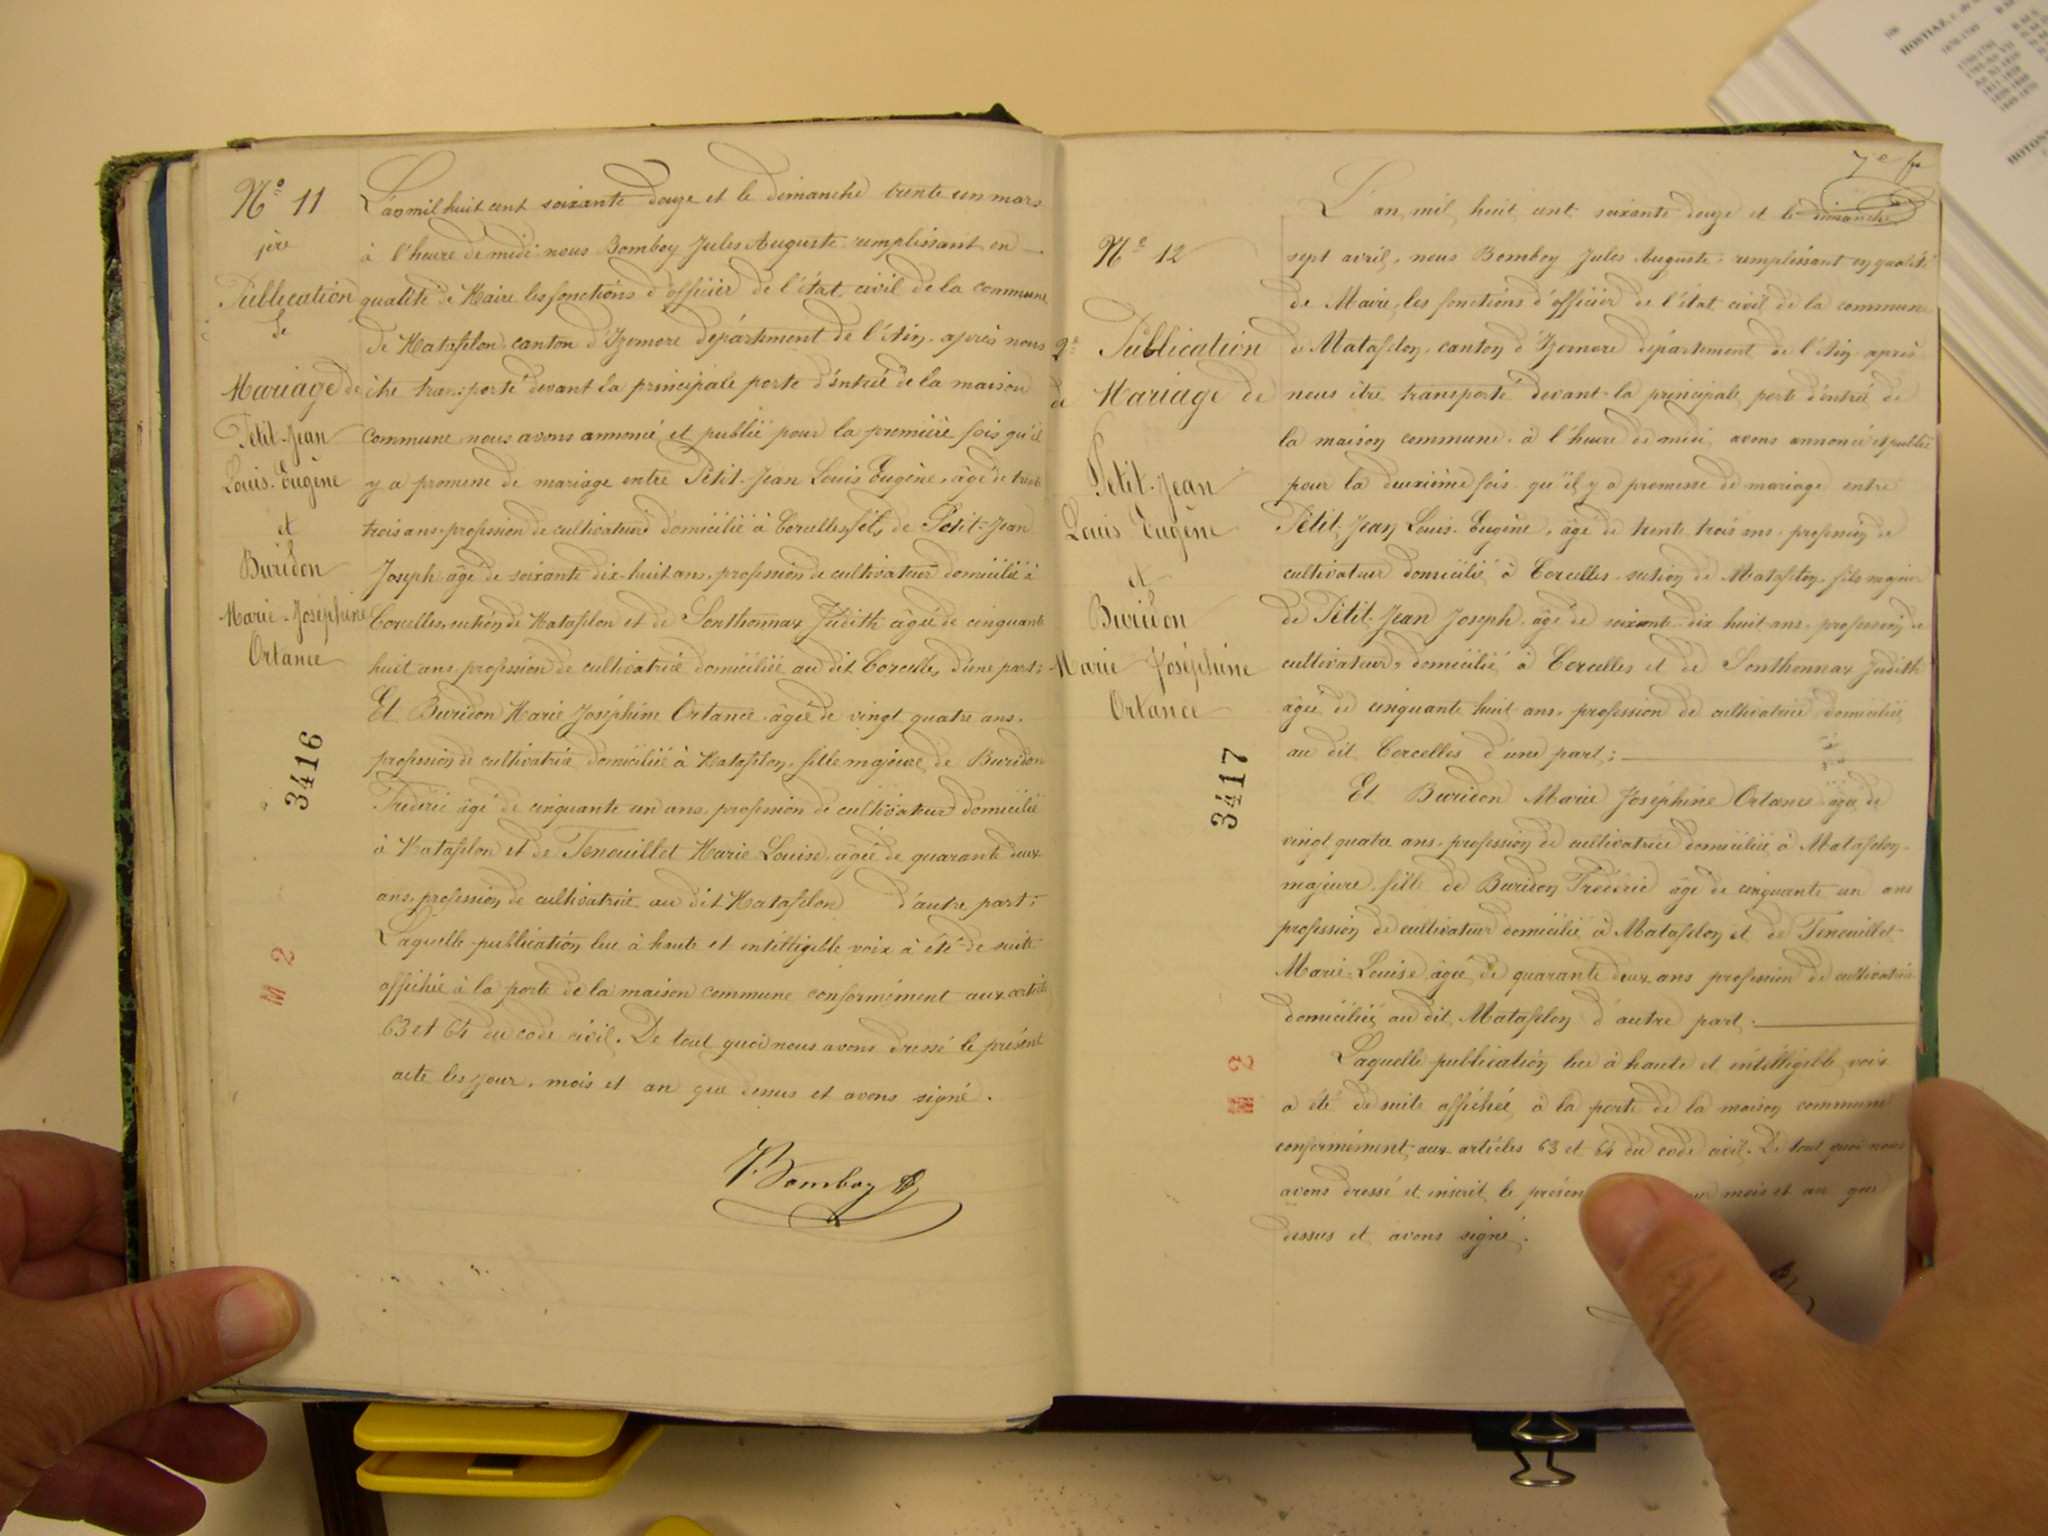 Nº 11
1ère
Publication
de
Mariage de
Petit-Jean
Louis-Eugène
et
Buridon
Marie-Joséphine
Ortance
3416
M 2
L'an mil huit cent soixante douze et le dimanche trente un mars
à l'heure de midi nous Bomboy Jules Auguste remplissant en
qualité de Maire les fonctions d'officier de l'état civil de la commune
de Matafelon canton d'Izernore département de l'Ain, après nous
être transporté devant la principale porte d'entrée de la maison
commune nous avons annoncé et publié pour la première fois qu'il
y a promesse de mariage entre Petit-Jean Louis Eugène, âgé de trente
trois ans, profession de cultivateur domicilié à Corcelles, fils de Petit-Jean
Joseph âgé de soixante dix-huit ans, profession de cultivateur domicilié à
Corcelles, section de Matafelon et de Sonthonnax Judith âgée de cinquante
huit ans, profession de cultivatrice domiciliée au dit Corcelles, d'une part;
Et Buridon Marie Joséphine Ortance âgée de vingt quatre ans,
profession de cultivatrice domiciliée à Matafelon, fille majeure de Buridon
Fréderic âgé de cinquante un ans, profession de cultivateur domicilié
à Matafelon et de Tenouillet Marie Louise âgée de quarante deux
ans, profession de cultivatrice au dit Matafelon d'autre part;
Laquelle publication lue à haute et intelligible voix à été de suite
affichée à la porte de la maison commune conformément aux articles
63 et 64 du code civil. De tout quoi nous avons dressé le présent
acte les jour, mois et an que dessus et avons signé.
Bomboy
7e f
Nº 12
2e
Publication
de Mariage de
Petit-Jean
Louis Eugène
et
Buridon
Marie Joséphine
Ortance
3417
M 2
L'an mil huit cent soixante douze et le dimanche
sept avril, nous Bomboy Jules Auguste, remplissant en qualité
de Maire, les fonctions d'officier de l'état civil de la commune
de Matafelon, canton d'Izernore département de l'Ain après
nous être transporté devant la principale porte d'entrée de
la maison commune, à l'heure de midi, avons annoncé et publié
pour la deuxième fois qu'il y a promesse de mariage entre
Petit-Jean Louis-Eugène, âgé de trente trois ans, profession de
cultivateur domicilié à Corcelles, section de Matafelon, fils majeur
de Petit-Jean Joseph, âgé de soixante-dix huit ans, profession de
cultivateur, domicilié à Corcelles et de Sonthonnax Judith
âgée de cinquante huit ans, profession de cultivatrice domiciliée
au dit Corcelles d'une part;
Et Buridon Marie Joséphine Ortance âgée de
vingt quatre ans, profession de cultivatrice domiciliée à Matafelon
majeure fille de Buridon Fréderic âgé de cinquante un ans
profession de cultivateur domicilié à Matafelon et de Tenouillet
Marie-Louise âgée de quarante deux ans profession de cultivatrice
domiciliée au dit Matafelon d'autre part.
Laquelle publication lue à haute et intelligible voix
a été de suite affichée à la porte de la maison commune
conformément aux articles 63 et 64 du code civil. De tout quoi nous
avons dressé et inscrit le présen mois et an que
dessus et avons signé.